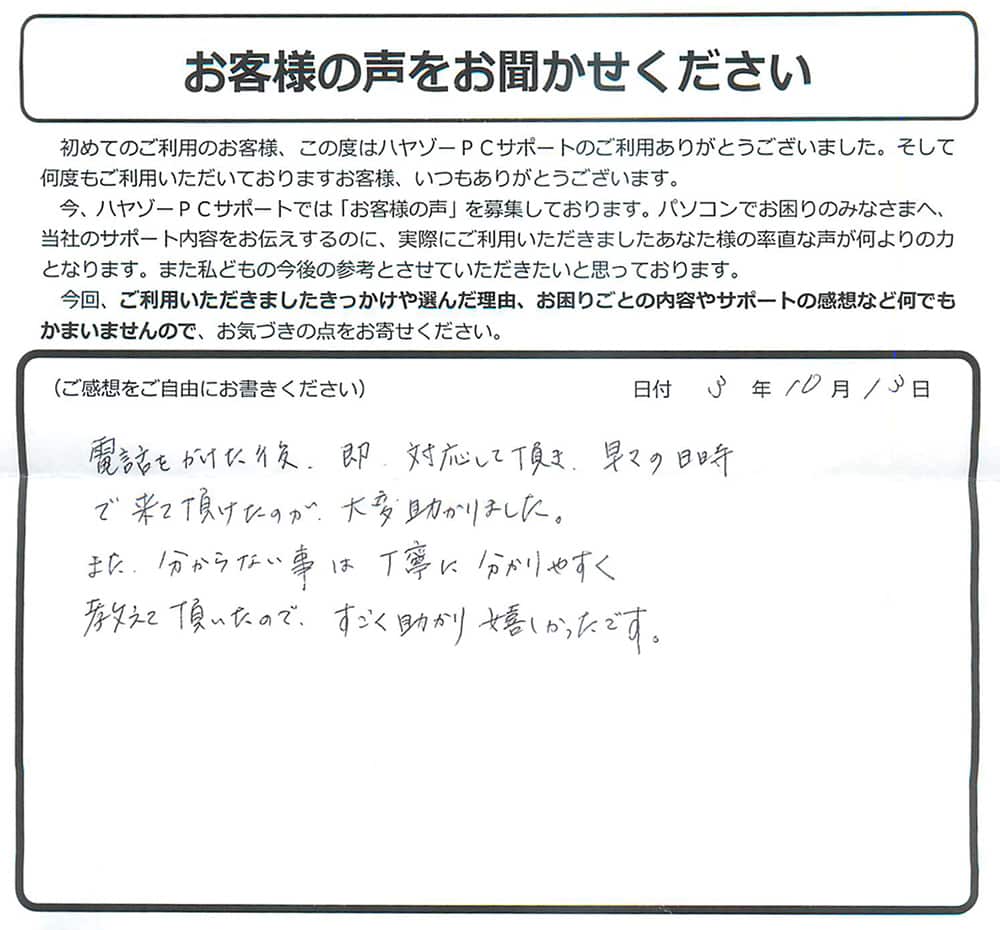 お客様の声をお聞かせください
初めてのご利用のお客様、この度はハヤゾーPCサポートのご利用ありがとうございました。そして
何度もご利用いただいておりますお客様、いつもありがとうございます。
今、ハヤゾーPCサポートでは「お客様の声」を募集しております。パソコンでお困りのみなさまへ、
当社のサポート内容をお伝えするのに、実際にご利用いただきましたあなた様の率直な声が何よりの力
となります。また私どもの今後の参考とさせていただきたいと思っております。
今回、ご利用いただきましたきっかけや選んだ理由、お困りごとの内容やサポートの感想など何でも
かまいませんので、お気づきの点をお寄せください。
（ご感想をご自由にお書きください） 日付 3 年 10 月 13 日
電話をかけた後、即、対応して頂き、早々の日時
で来て頂けたのが、大変助かりました。
また、分からない事は丁寧に分かりやすく
教えて頂いたので、すごく助かり嬉しかったです。